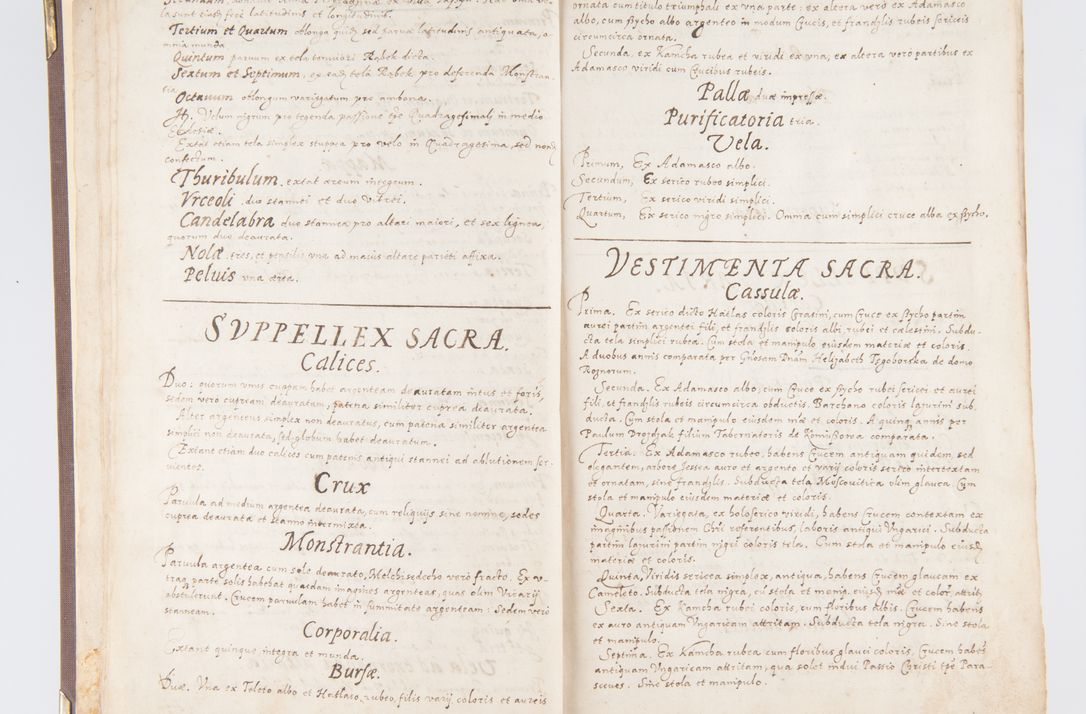 la sunt eiusdē ferè latitudinis et longitudinis.
Tertium et Quartum oblonga quidē sed parvæ latitudinis antiquata, o-
mnia munda.
Quintum parvum ex tela tenuiori Rąbek dicta.
Sextum et Septimum, ex eadē tela Rąbek pro deferenda Monstran-
tia.
Octauum oblongum variegatum pro ambona.
Itē. Velum nigrum pro tegenda passione tpe Quadragesimali in medio
Ecclesiæ.
Extat etiam tela simplex stuppea pro velo in Quadragesima, sed nondū
confectum.
Thuribulum. extat æreum integrum.
Vrceoli duo stannei et duo vitrei.
Candelabra duo stannea pro altari maiori, et sex lignea,
quorum duo deaurata.
Nolæ tres, et pensilis vna ad maius altare parieti affixa.
Peluis vna ærea.
SVPPELLEX SACRA.
Calices.
Duo: quorum vnus cuppam habet argenteam deauratam intus et foris,
sedem verò cupream deauratam, patena similiter cuprea deaurata.
Alter argenteus simplex non deauratus, cum patena similiter argentea
simplici non deaurata, sed globum habet deauratum.
Extant etiam duo calices cum patenis antiqui stannei ad ablutionem ser-
uientes.
Crux
Paruula ad medium argentea deaurata, cum reliquijs sine nomine, sedes
cuprea deaurata et stanno intermixta.
Monstrantia.
Paruula argentea cum sole deaurato, Melchisedecho verò fracto. Ex v-
traq parte solis habebat quasdam imagines argenteas, quas olim Vicarij
abstulerunt. Crucem paruulam habet in summitate argenteam: Sedem verò
stanneam.
Corporalia.
Extant quinque integra et munda.
Bursæ.
Duæ. Vna ex Teleto albo et Hatłaso rubeo, filis varij coloris et aureis
ornata cum titulo triumphali ex vna parte: ex altera verò ex Adamasco
albo, cum psycho albo argenteo in modum Crucis, et frandzlis rubeis sericeis
circumcirca ornata.
Secunda, ex Kamcha rubea et viridi ex vna, ex altera verò partibus ex
Adamasco viridi cum Crucibus rubeis.
Pallæ duæ impressæ.
Purificatoria tria.
Vela.
Primum, Ex Adamasco albo.
Secundum, Ex serico rubeo simplici.
Tertium, Ex serico viridi simplici.
Quartum, Ex serico nigro simplici. Omnia cum simplici cruce alba ex psycho.
VESTIMENTA SACRA.
Cassulæ.
Prima. Ex serico dicto Hatlas coloris Crasini, cum Cruce ex psycho partim
aurei partim argentei fili, et frandzlis coloris albi, rubei et cælestini. Subdu-
cta tela simplici rubea. Cum stola et manipulo eiusdem materiæ et coloris.
A duobus annis comparata per Gñosam Dnam Helizabeth Tęgoborska de domo
Roznorum.
Secunda. Ex Adamasco albo, cum Cruce ex psycho rubei sericei et aurei
fili, et frandzlis rubeis circumcirca obductis. Barchano coloris lazurini sub-
ducta. Cum stola et manipulo eiusdem mæ et coloris. A quinq annis per
Paulum Drozdzak filium Tabernatoris de comparata.
Tertia. Ex Adamasco rubeo, habens Crucem antiquam quidem, sed
elegantem, arbore Jessea auro et argento et varij coloris serico intertextam
et ornatam, sine frandzlis. Subducta tela Moscouitica olim glauca. Cum
stola et manipulo eiusdem materiæ et coloris.
Quarta. Variegata, ex holoserico viridi, habens Crucem contextam ex
imaginibus passionem Chri referentibus, laboris antiqui Vngarici. Subducta
partim lazurini partim nigri coloris tela. Cum stola et manipulo eiusdē
materiæ et coloris.
Quinta, Viridis sericea simplex, antiqua, habens Crucem glaucam ex
Cameleto. Subducta tela nigra, cū stola et manip. eiusdē mæ et color. attritę
Sexta. Ex Kamcha rubei coloris, cum floribus albis. Crucem habens
ex auro antiquam Vngaricam attritam. Subducta tela nigra. Sine stola
et manipulo.
Septima. Ex Kamcha rubea cum floribus glauci coloris, Crucem habens
antiquam Vngaricam attritam, qua solet indui Passio Christi tpe Para-
sceues. Sine stola et manipulo.